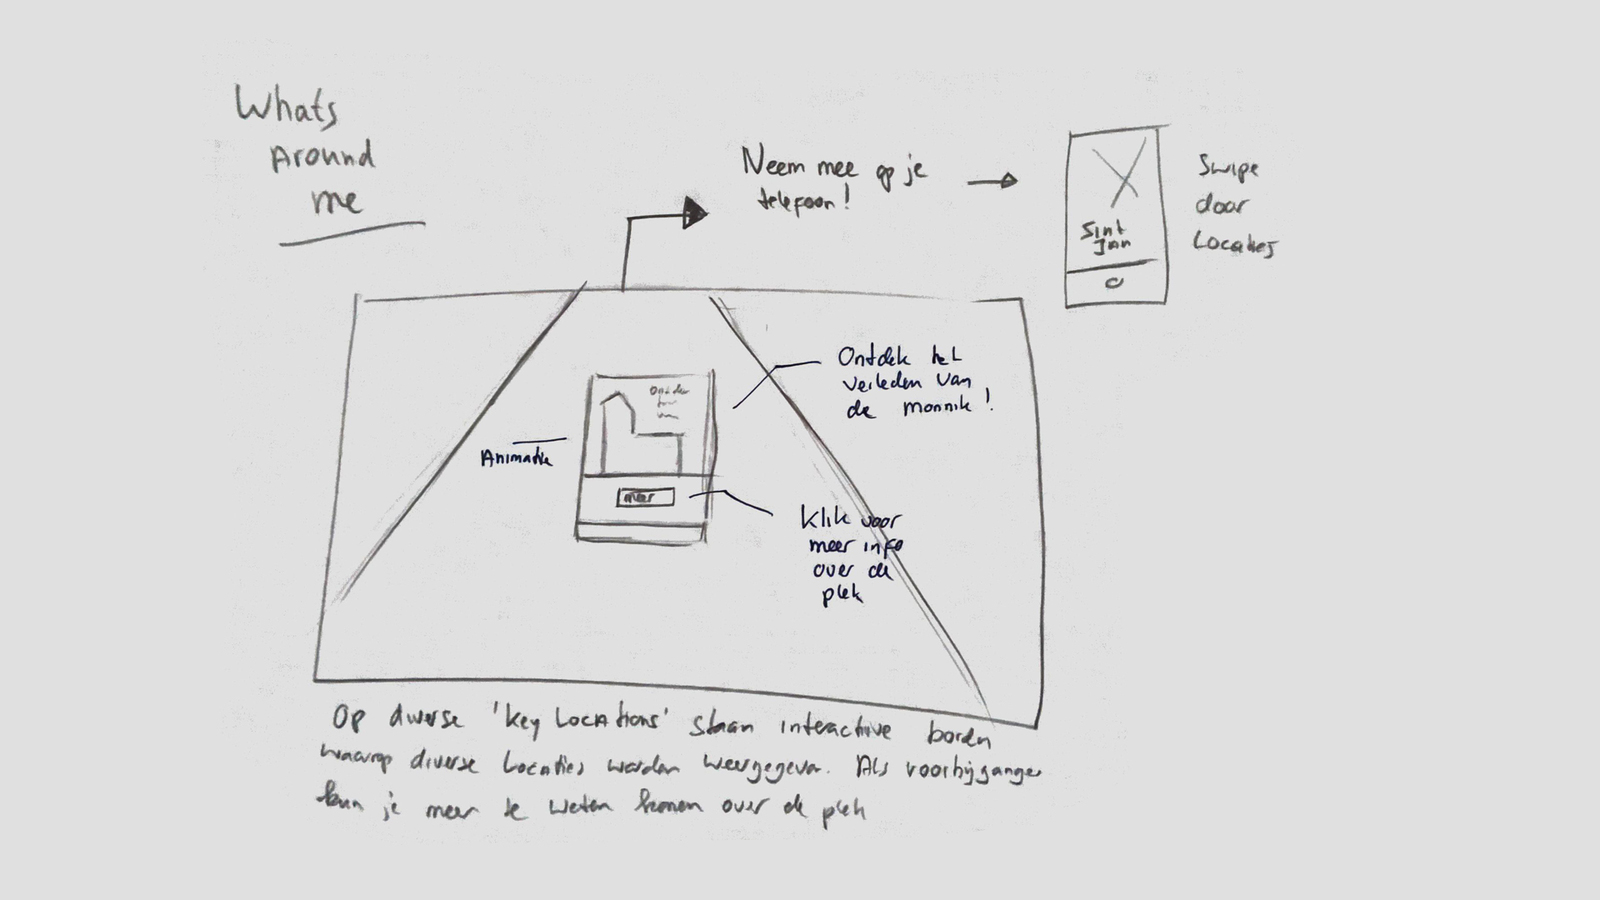 Whats
Around
me
Neem mee op je
telefoon!
Sint
Jan
Swipe
door
Locaties
Ontdek het
verleden van
de monnik!
Animatie
meer
Klik voor
meer info
over de
plek
Op diverse 'key Locations' staan interactive borden
waarop diverse Locaties worden weergegeven. Als voorbijganger
kun je meer te weten komen over de plek